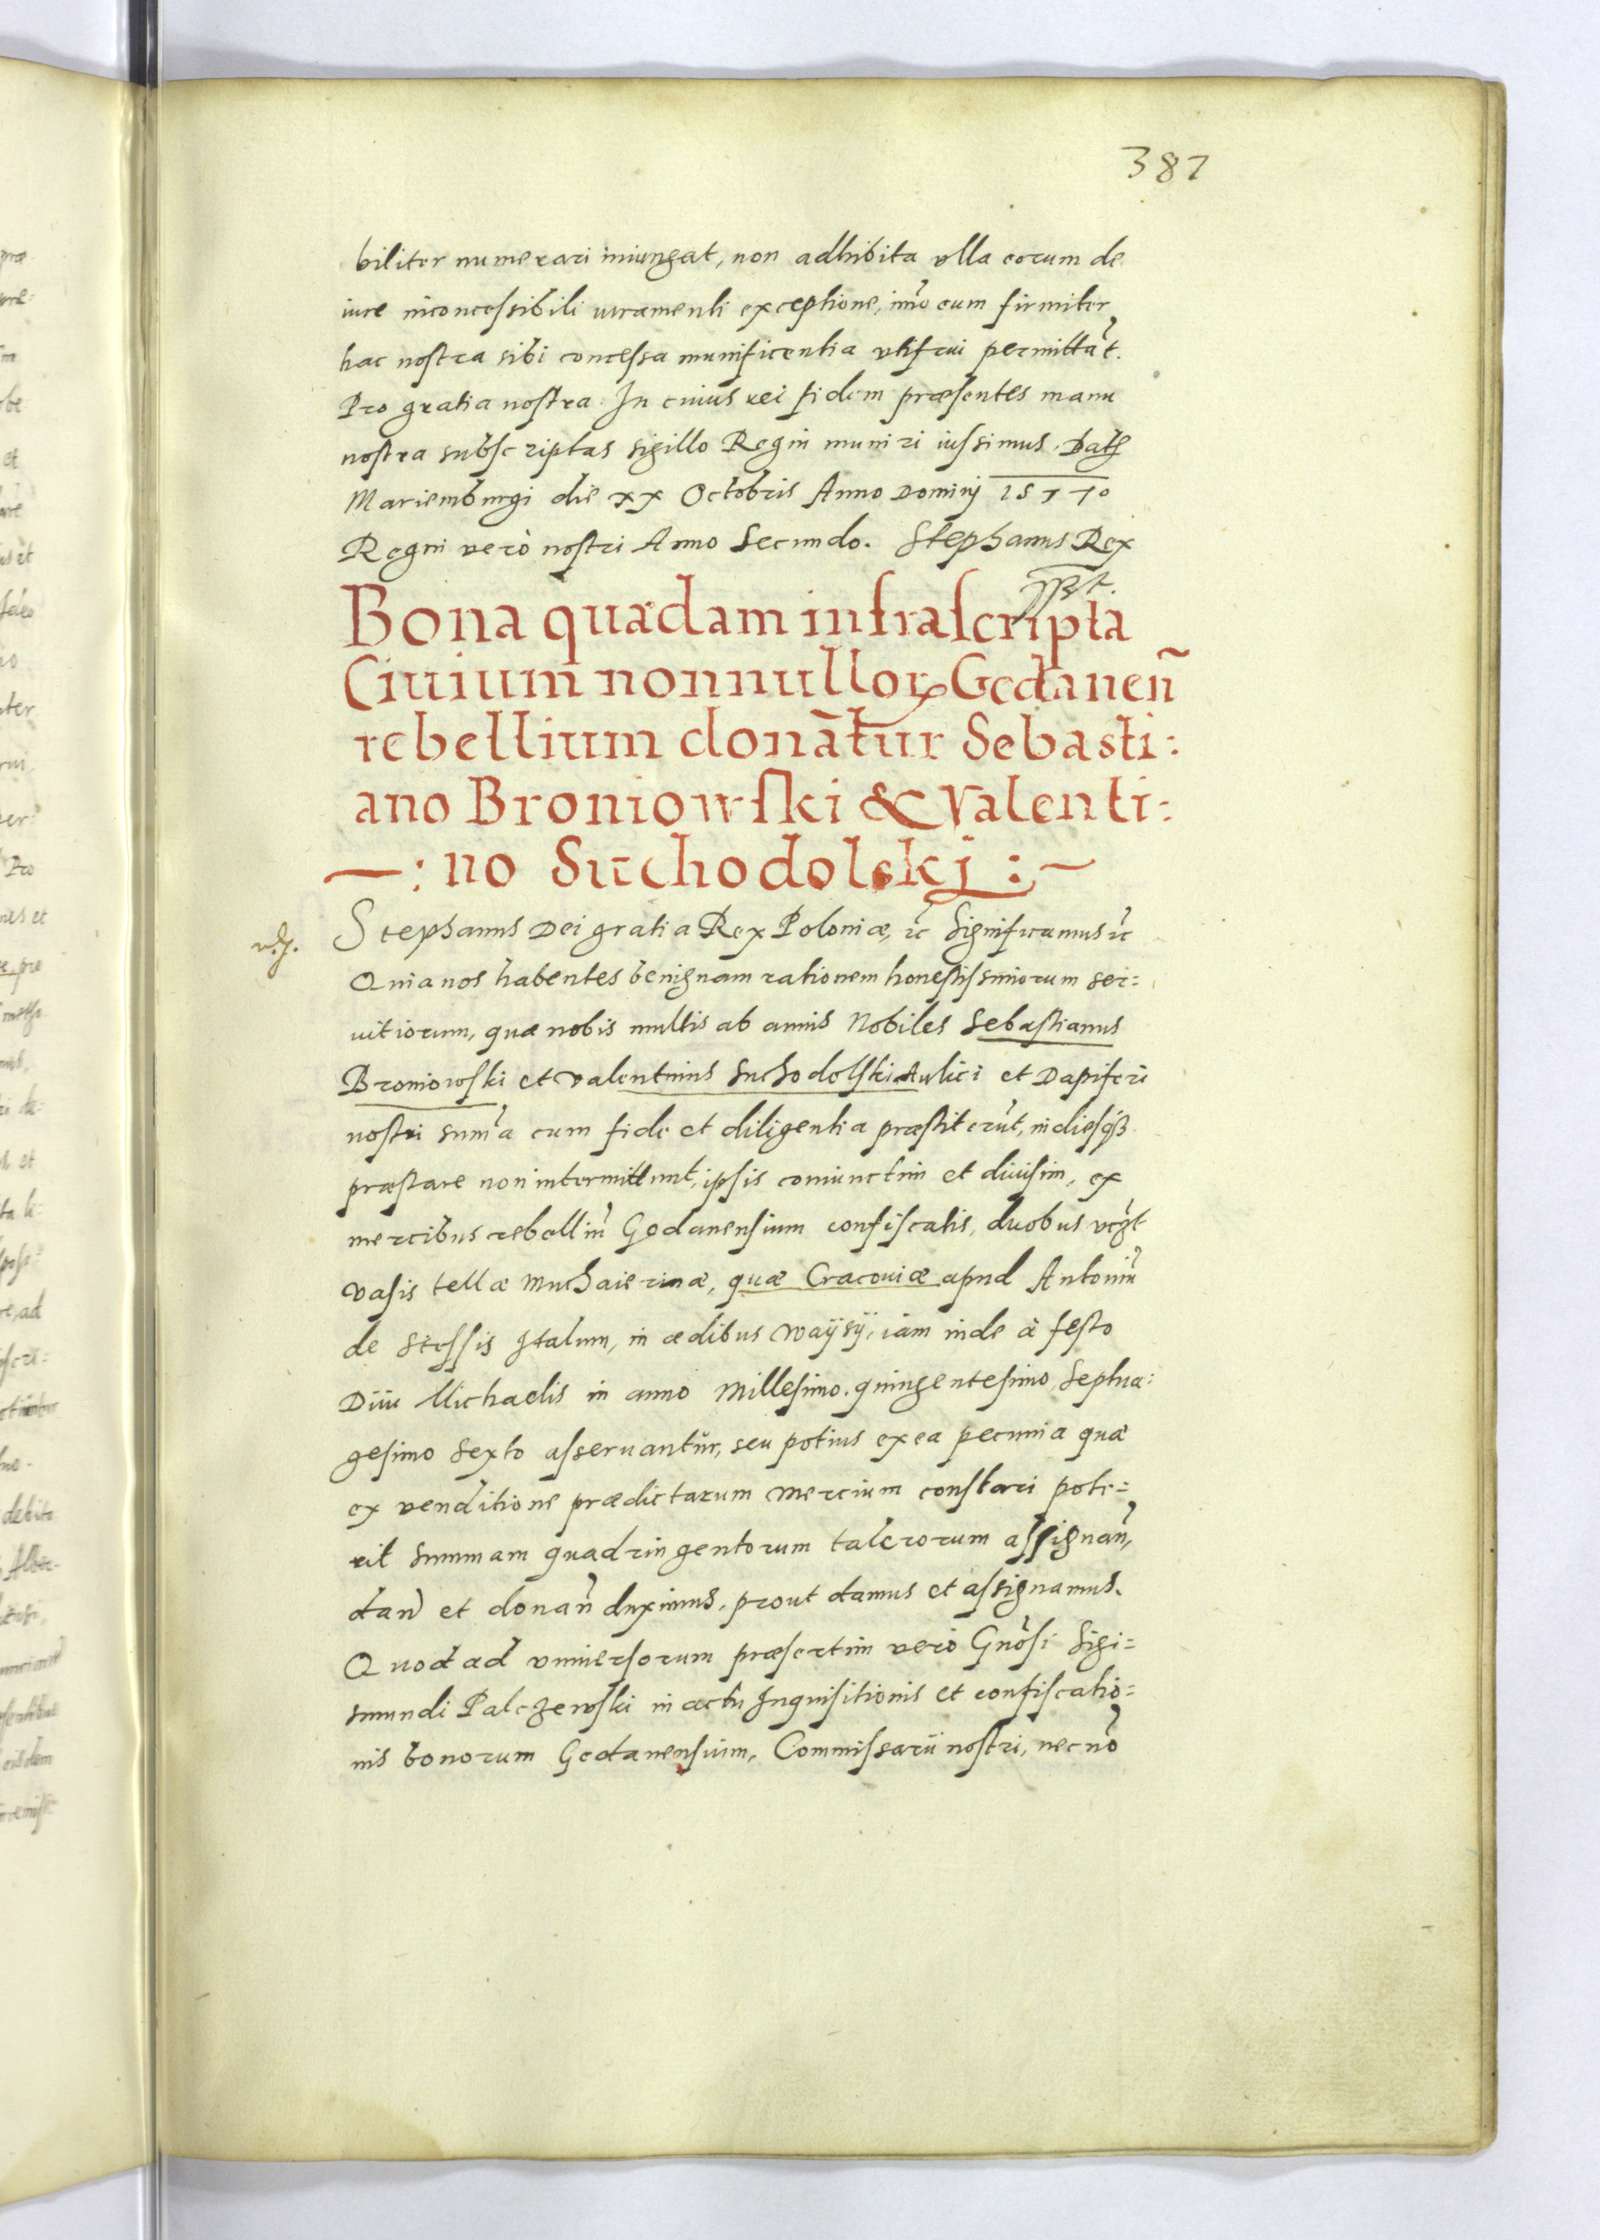 387
biliter numerari iniungat, non adhibita vlla eorum de
iure inconcessibili iuramenti exceptione, im̃o eum firmiter
hac nostra sibi concessa munificentia vtifrui permittãt.
Pro gratia nostra. In cuius rei fidem præsentes manu
nostra subscriptas sigillo Regni muniri iussimus. Dat
Mariemburgi die xx Octobris Anno Dominj 1577o
Regni verò nostri Anno Secundo. Stephanus Rex
Bona quædam infrascripta
Ciuium nonnulloꝝ Gedaneñ
rebellium donãtur Sebasti:
ano Broniowski & Valenti:
—: no Suchodolskj :~
Stephanus Dei gratia Rex Poloniæ, ꝛc̃ Significamus ꝛc̃
Quia nos habentes benignam rationem honestissimorum ser:
uitiorum, quæ nobis multis ab annis Nobiles Sebastianus
Broniowski et Valentinus Suchodolski Aulici et Dapiferi
nostri sum̃a cum fide et diligentia præstiterũt, in diesq́ꝫ
præstare non intermittunt, ipsis coniunctim et diuisim, ex
mercibus rebelliũ Gedanensium confiscatis, duobus vcꝫt
vasis tellæ Muchaierinæ, quæ Cracouiæ apud Antoniũ
de Stessis Italum, in ædibus Waÿsÿ, iam inde à festo
Diui Michaelis in anno Millesimo. quingentesimo Septua:
gesimo Sexto asseruantur, seu potius ex ea pecunia quæ
ex venditione prædictarum mercium constari pote:
rit Summam quadringentorum talerorum assignañ,
dañ et donañ duximus, prout damus et assignamus.
Quod ad vniuersorum præsertim verò Gnõsi Sigi:
smundi Palczewski in actu Inquisitionis et confiscatio:
nis bonorum Gedanensium, Commissarii nostri, necnõ